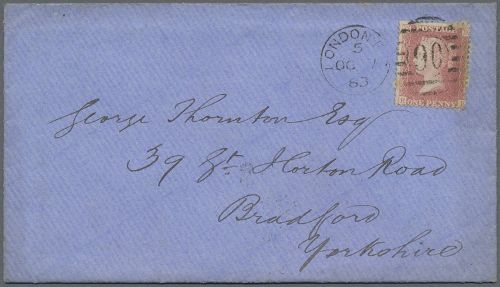 LONDON
5
OC 7
63
90
ONE PENNY
George Thornton Esq
39 Gt Horton Road
Bradford
Yorkshire